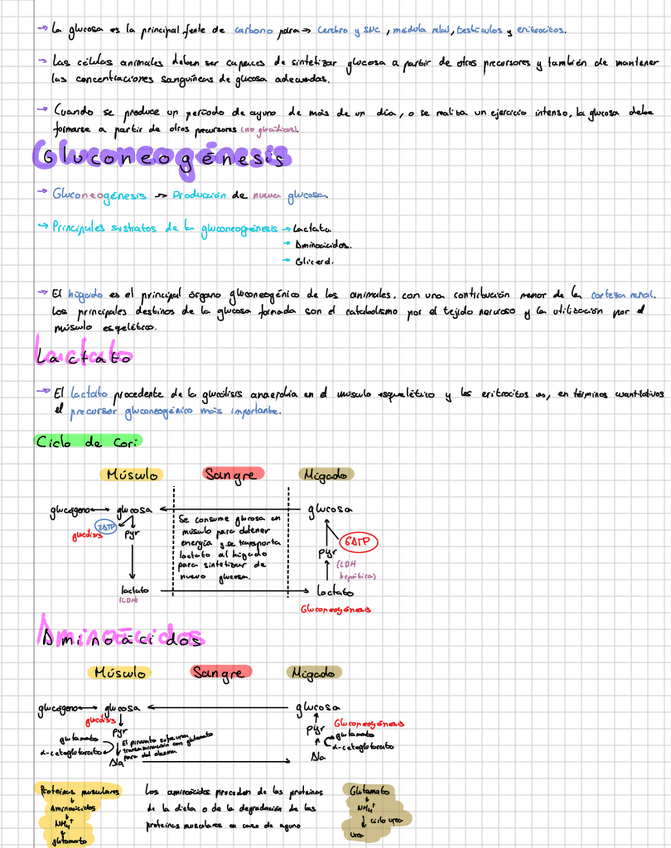 → La glucosa es la principal fente de carbono para → Cerebro y SNC, médula renal, testículos y eritrocitos.
→ Las células animales deben ser capaces de sintetizar glucosa a partir de otros precursores y también de mantener
las concentraciones sanguíneas de glucosa adecuadas.
→ Cuando se produce un período de ayuno de más de un día, o se realiza un ejercicio intenso, la glucosa debe
formarse a partir de otros precursores (no glucídicos).
Gluconeogénesis
→ Gluconeogénesis → Producción de nueva glucosa
→ Principales sustratos de la gluconeogénesis → Lactato
→ Aminoácidos.
→ Glicerol.
→ El hígado es el principal órgano gluconeogénico de los animales, con una contribución menor de la corteza renal.
Los principales destinos de la glucosa formada son el catabolismo por el tejido nervioso y la utilización por el
músculo esquelético.
Lactato
→ El lactato procedente de la glucólisis anaerobia en el músculo esquelético y los eritrocitos es, en términos cuantitativos
el precursor gluconeogénico más importante.
Ciclo de Cori
Músculo Sangre Higado
glucógeno ↔ glucosa ← glucosa
2ATP
glucólisis
Pyr
Se consume glucosa en
músculo para obtener
energía y se transporta
lactato al hígado
para sintetizar de
nuevo glucosa.
6ATP
Pyr
(LDH
hepática)
lactato → lactato
(LDH)
Gluconeogénesis
Aminoácidos
Músculo Sangre Higado
glucógeno ↔ glucosa ← glucosa
glucólisis
Pyr
glutamato
α-cetoglutarato
El piruvato sufre una
transaminación con glutamato
para dar alanina
Ala → Ala
Pyr
Gluconeogénesis
glutamato
α-cetoglutarato
Proteínas musculares
↓
Aminoácidos
↓
NH₄⁺
↓
glutamato
Los aminoácidos proceden de las proteínas
de la dieta o de la degradación de las
proteínas musculares en caso de ayuno
Glutamato
↓
NH₄⁺
↓ ciclo urea
Urea